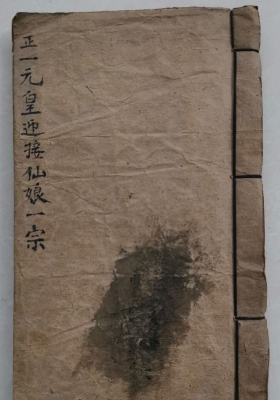 正一元皇迎接仙娘一宗